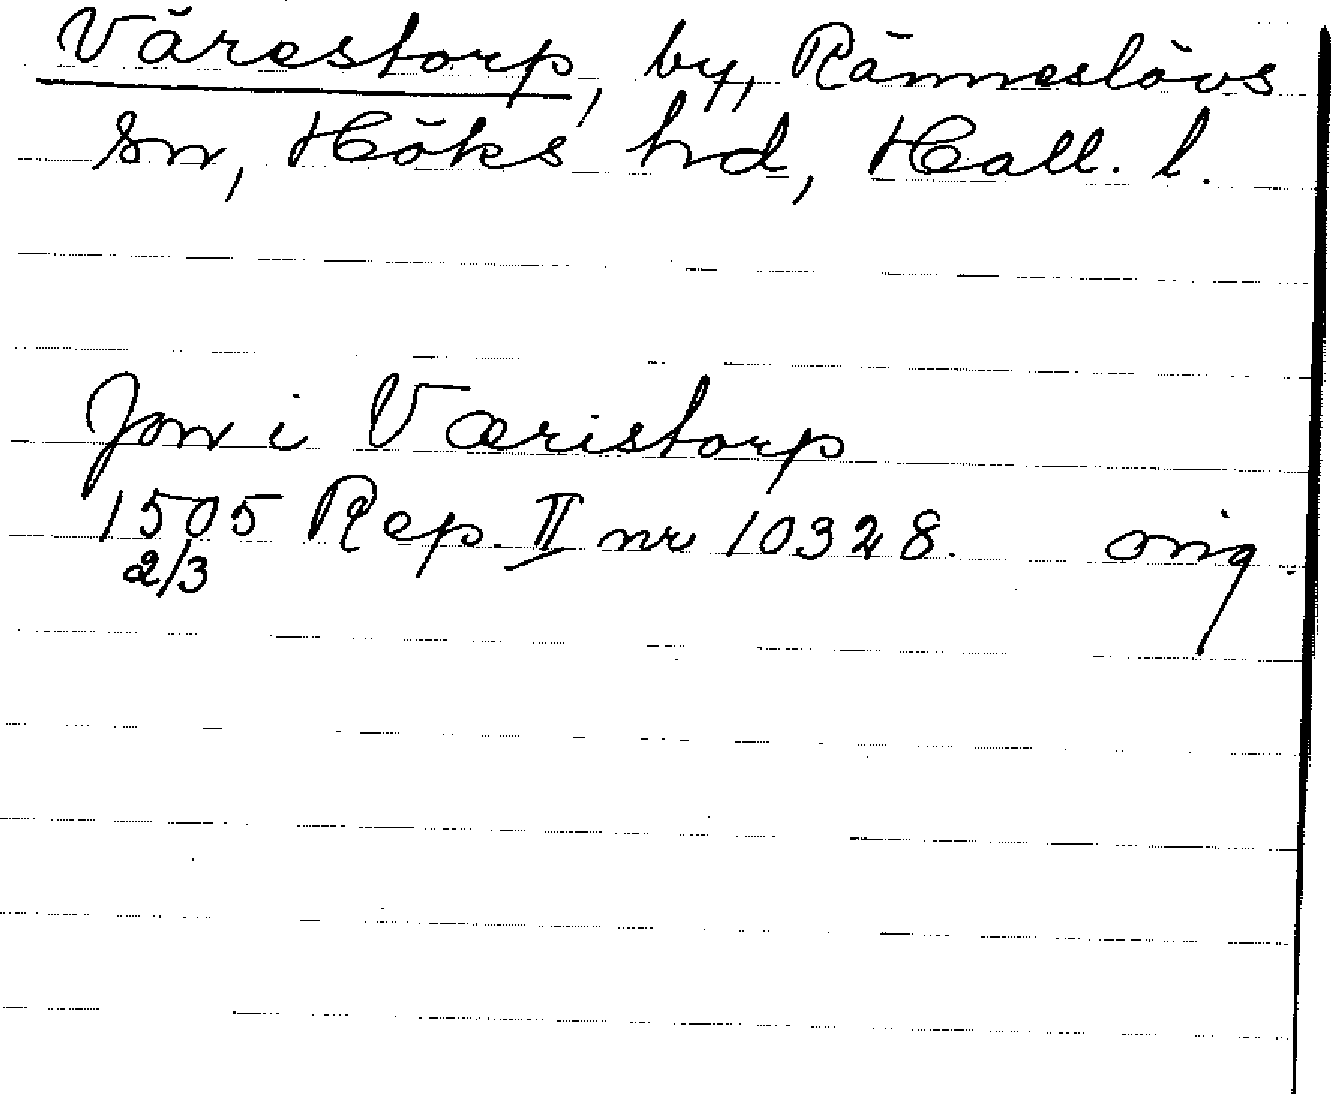 Värestorp, by, Ränneslövs
sn, Höks hd, Hall. l.
Jon i Væristorp
1505 Rep. II nr 10328. orig.
2/3